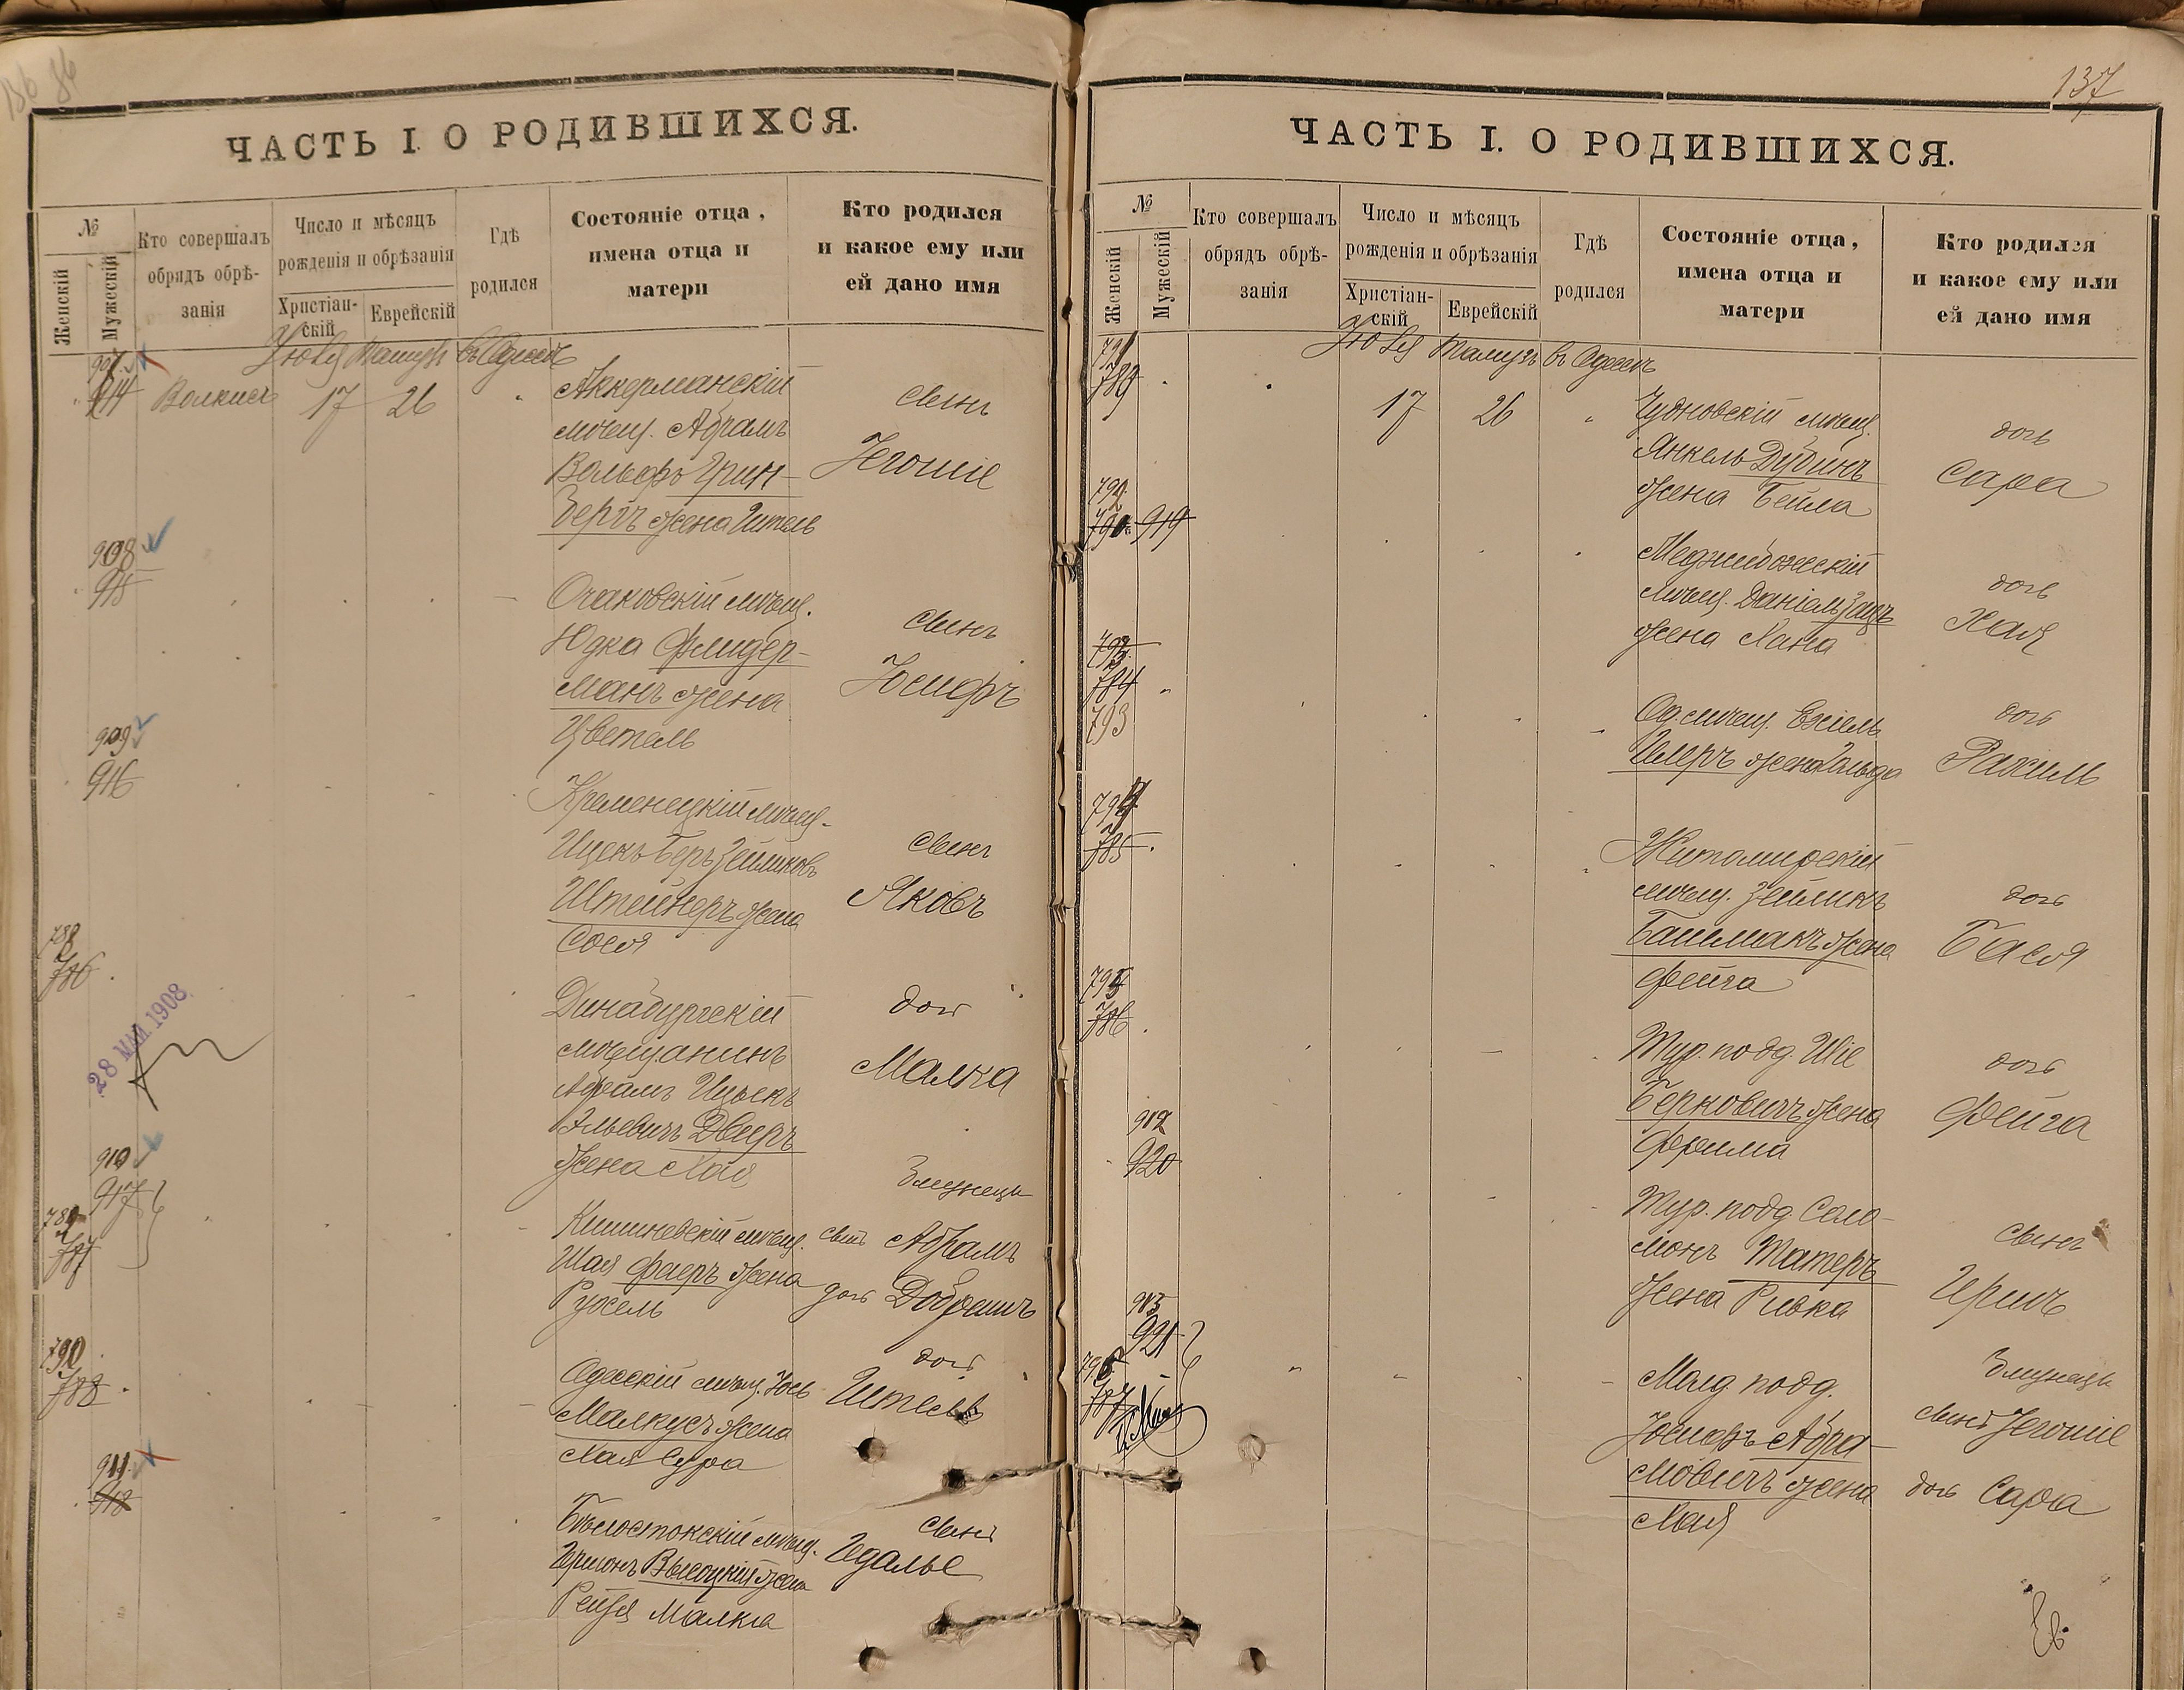 ЧАСТЬ I. О РОДИВШИХСЯ.
№
Женскій
Мужескій
Кто совершалъ
обрядъ обрѣ-
занія
Число и мѣсяцъ
рожденія и обрѣзанія
Христіан-
скій
Еврейскій
Гдѣ
родился
Состояніе отца,
имена отца и
матери
Кто родился
и какое ему или
ей дано имя
Іюля Тамузъ въ Одессѣ
907
914
17 26
Аккерманскій
мѣщ. Абрамъ
Вольфъ Грин-
бергъ жена Итель
сынъ
Іегошіе
908
915
Очаковскій мѣщ.
Юдка Флидер-
манъ жена
Цветель
сынъ
Іосифъ
909
916
Кременецкій мѣщ.
Ицекъ Беръ Зейликовъ
Штейнеръ жена
Сося
сынъ
Яковъ
788
786
28 МАЙ 1908
Динабургскій
мѣщанинъ
Абрамъ Ицекъ
Эльевичъ Двиръ
жена Хая
дочь
Малка
910
917
789
787
Кишиневскій мѣщ.
Шая Фаеръ жена
Рухель
Близнецы
сынъ Абрамъ
дочь Добришъ
790
788
Одесскій мѣщ. Іось
Малкусъ жена
Хая Сура
дочь
Итель
911
918
Бѣлостокскій мѣщ.
Гершонъ Высоцкій жена
Рейзя Малка
сынъ
Гедалье
137
ЧАСТЬ I. О РОДИВШИХСЯ.
№
Женскій
Мужескій
Кто совершалъ
обрядъ обрѣ-
занія
Число и мѣсяцъ
рожденія и обрѣзанія
Христіан-
скій
Еврейскій
Гдѣ
родился
Состояніе отца,
имена отца и
матери
Кто родился
и какое ему или
ей дано имя
Іюля Тамузъ въ Одессѣ
791
789
17 26
Чудновскій мѣщ.
Янкель Дубинъ
жена Бейла
дочь
Сара
792
790 919
Меджибожскій
мѣщ. Даніель Зацъ
жена Хана
дочь
Хая
793
784
793
Од. мѣщ. Ехіель
Имеръ жена Гольда
дочь
Рахиль
794
785
Житомирскій
мѣщ. Зейликъ
Башмакъ жена
Фейга
дочь
Бася
795
786
Тур. подд. Шіе
Берковичъ жена
Фрима
дочь
Фейга
912
920
Тур. подд. Соло-
монъ Татеръ
жена Ривка
сынъ
Гершъ
913
921
796
787
Молд. подд.
Іосифъ Абра-
мовичъ жена
Хая
Близнецы
сынъ Іегошіе
дочь Сара